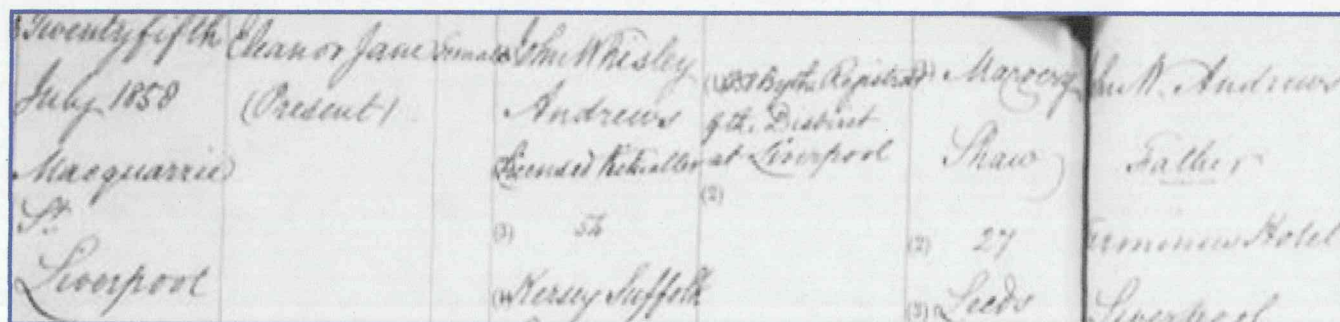 Twentyfifth
July 1858
Macquarrie
St.
Liverpool
Eleanor Jane
(Present)
Female
John Whisley
Andrews
Licensed Retailer
(3) 54
(4) Kersey Suffolk
By the Registrar
of the District
at Liverpool
(2)
Margery
Shaw
(2) 27
(3) Leeds
Jn W. Andrews
Father
Terminus Hotel
Liverpool